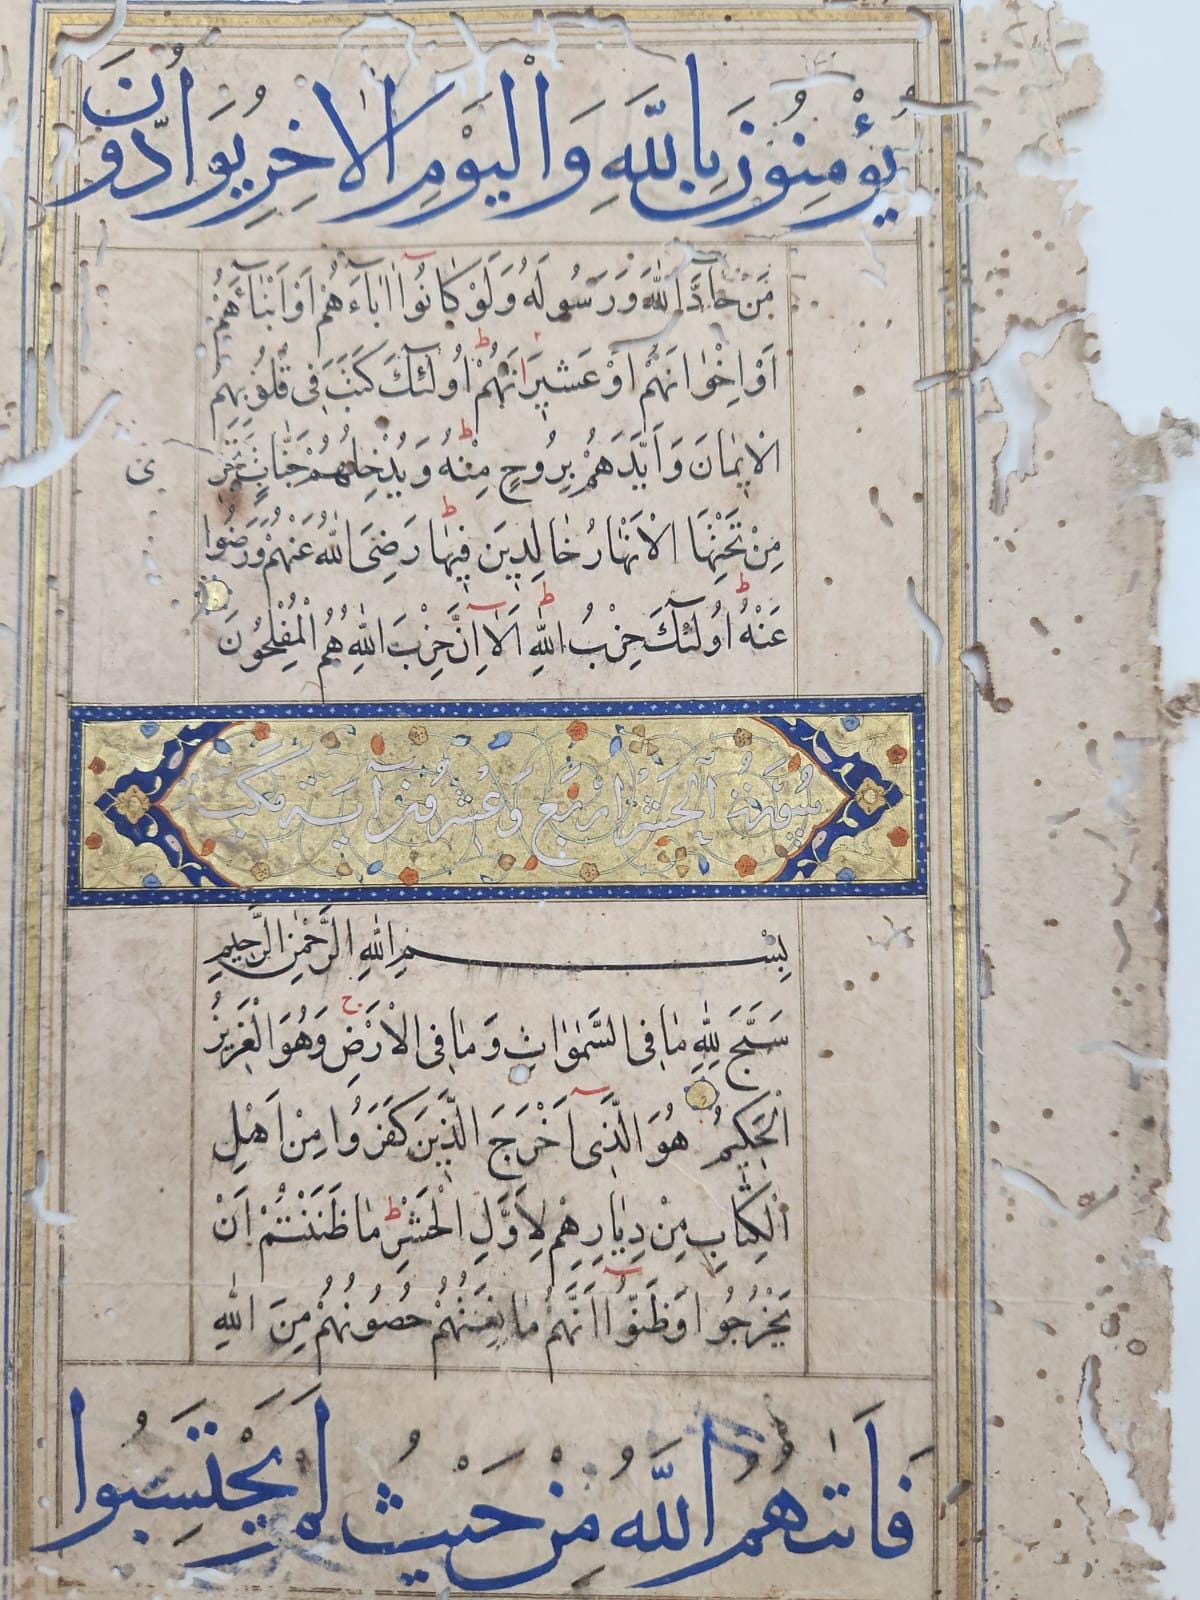 يُؤْمِنُونَ بِاللَّهِ وَالْيَوْمِ الْاٰخِرِ يُوَادُّونَ
مَنْ حَادَّ اللّٰهَ وَرَسُولَهُ وَلَوْ كَانُوا اٰبَاءَهُمْ اَوْ اَبْنَاءَهُمْ
اَوْ اِخْوَانَهُمْ اَوْ عَشِيرَتَهُمْ ط اُولٰئِكَ كَتَبَ فِي قُلُوبِهِمُ
الْاِيمَانَ وَاَيَّدَهُمْ بِرُوحٍ مِنْهُ ط وَيُدْخِلُهُمْ جَنَّاتٍ تَجْرِي
مِنْ تَحْتِهَا الْاَنْهَارُ خَالِدِينَ فِيهَا ط رَضِيَ اللّٰهُ عَنْهُمْ وَرَضُوا
عَنْهُ ط اُولٰئِكَ حِزْبُ اللّٰهِ ط اَلَا اِنَّ حِزْبَ اللّٰهِ هُمُ الْمُفْلِحُونَ
سُورَةُ الْحَشْرِ اَرْبَعَ وَعِشْرُونَ آيَة مكية
بِسْمِ اللّٰهِ الرَّحْمٰنِ الرَّحِيمِ
سَبَّحَ لِلّٰهِ مَا فِي السَّمٰوَاتِ وَمَا فِي الْاَرْضِ ج وَهُوَ الْعَزِيزُ
الْحَكِيمُ هُوَ الَّذِي اَخْرَجَ الَّذِينَ كَفَرُوا مِنْ اَهْلِ
الْكِتَابِ مِنْ دِيَارِهِمْ لِاَوَّلِ الْحَشْرِ ط مَا ظَنَنْتُمْ اَنْ
يَخْرُجُوا وَظَنُّوا اَنَّهُمْ مَانِعَتُهُمْ حُصُونُهُمْ مِنَ اللّٰهِ
فَاَتٰهُمُ اللَّهُ مِنْ حَيْثُ لَمْ يَحْتَسِبُوا